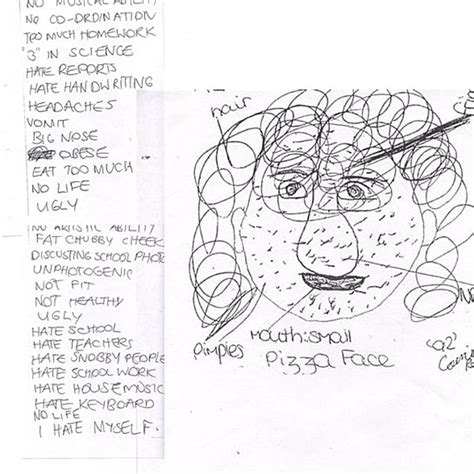 NO MUSICAL ABILITY
NO CO-ORDINATION
TOO MUCH HOMEWORK
"B" IN SCIENCE
HATE REPORTS
HATE HANDWRITING
HEADACHES
VOMIT
BIG NOSE
OBESE
EAT TOO MUCH
NO LIFE
UGLY
NO ARTISTIC ABILITY
FAT CHUBBY CHEEK
DISCUSTING SCHOOL PHOTO
UNPHOTOGENIC
NOT FIT
NOT HEALTHY
UGLY
HATE SCHOOL
HATE TEACHERS
HATE SNOBBY PEOPLE
HATE SCHOOL WORK
HATE HOUSEMUSIC
HATE KEYBOARD
NO LIFE
I HATE MYSELF.
hair
Pimples
Mouth:small
Pizza Face